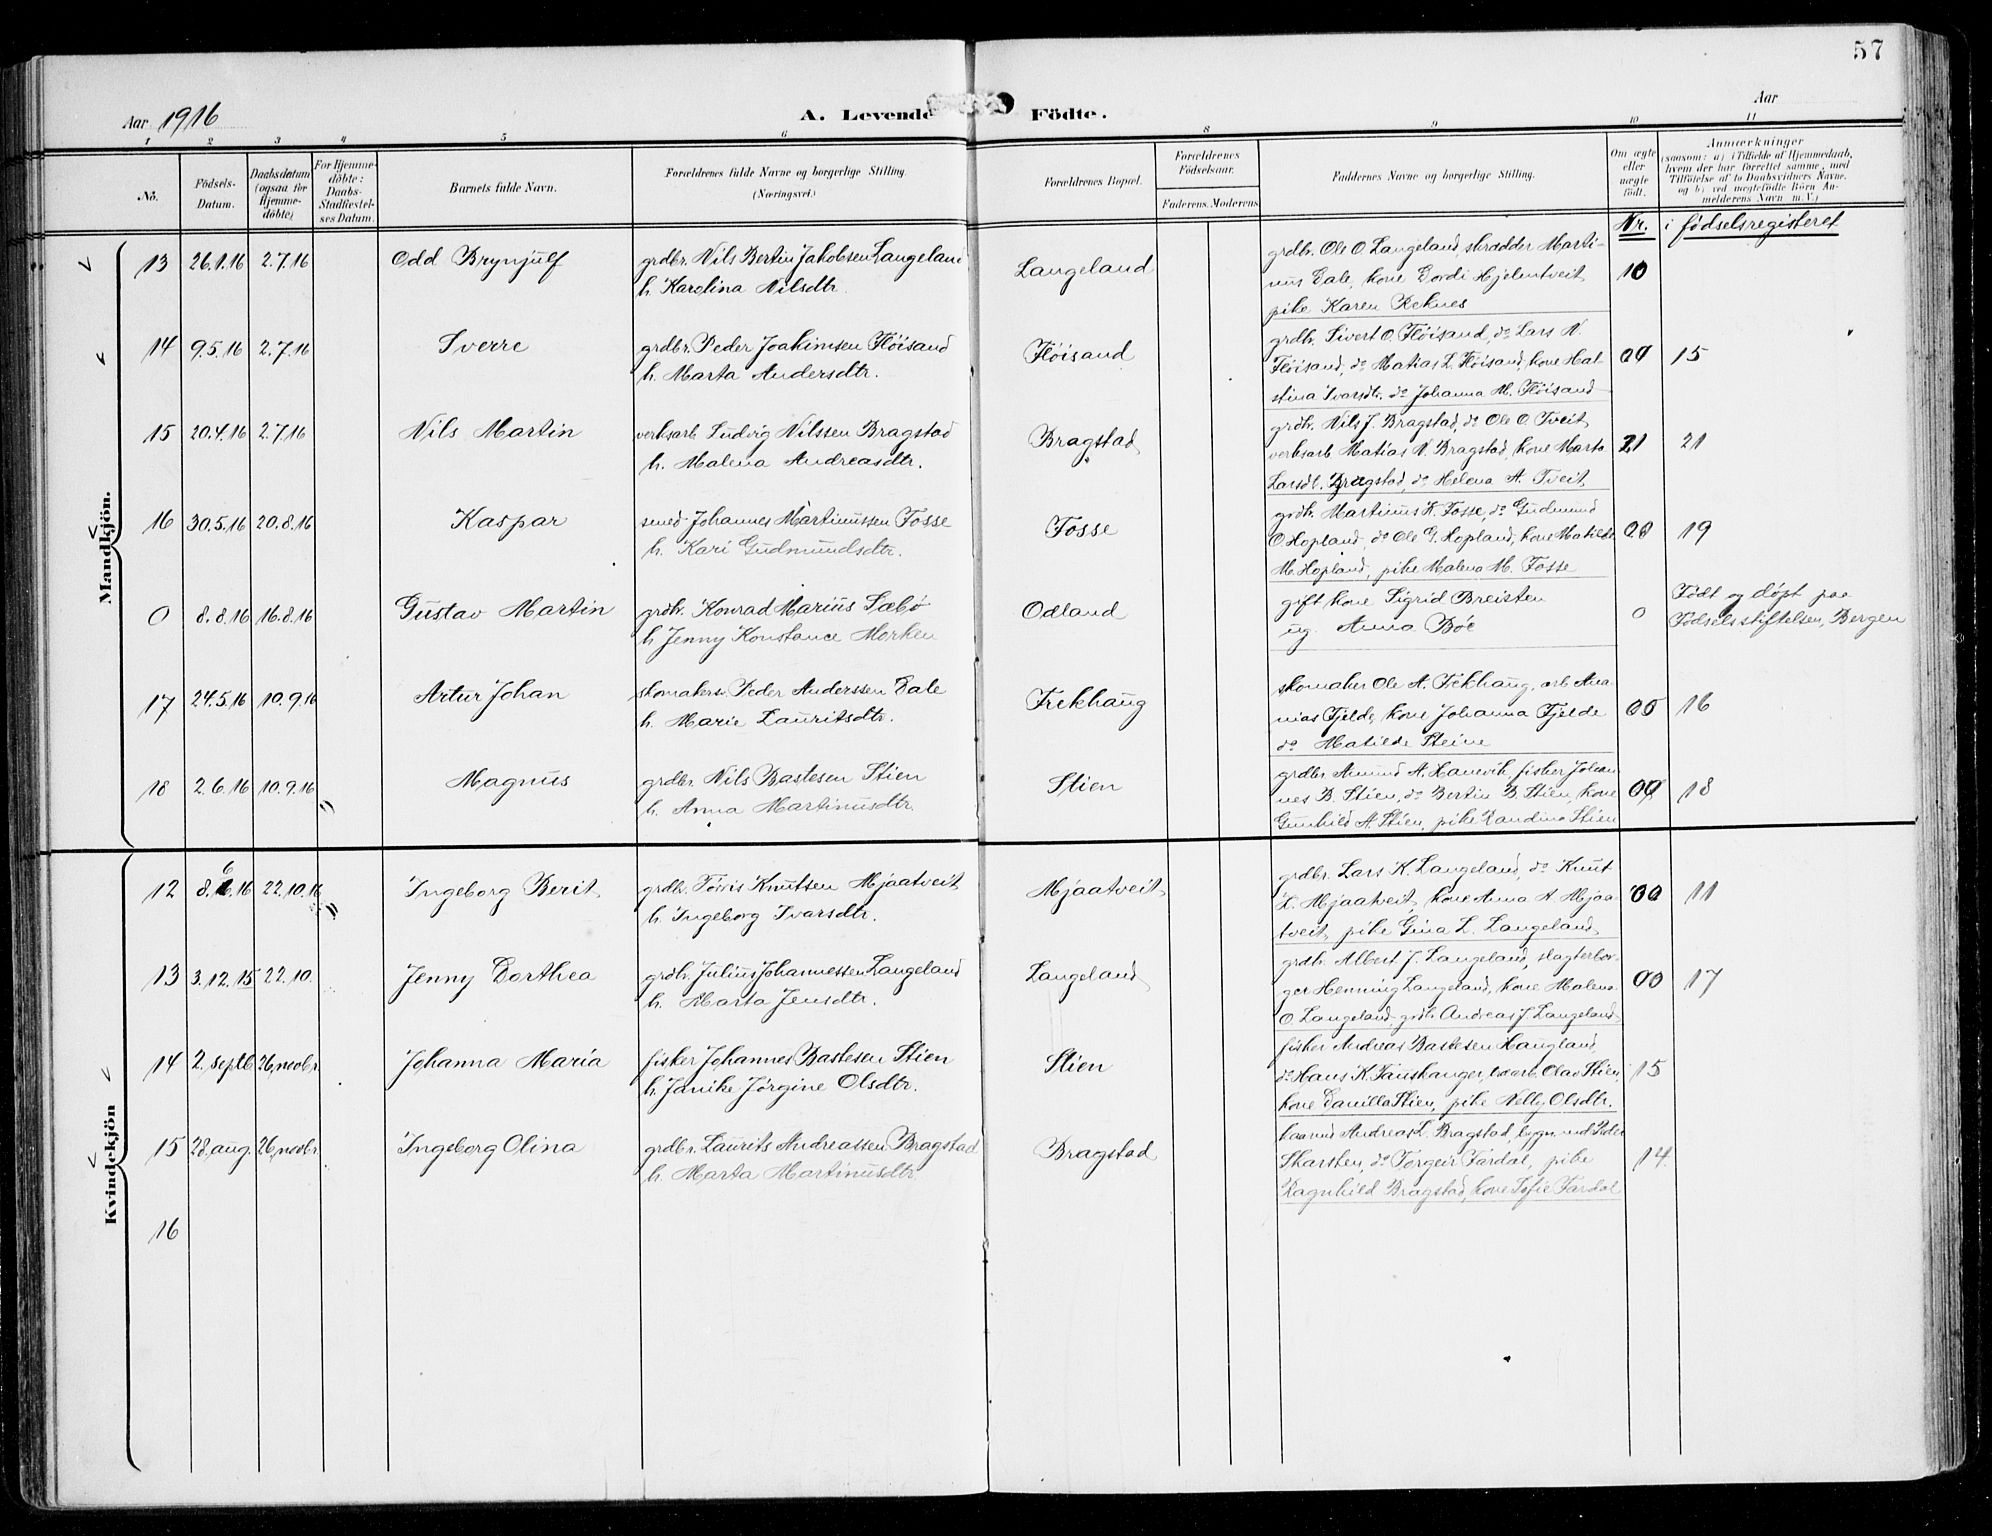 57
Aar 1916
A. Levende Födte.
Aar
1 2 3 4 5 6 8 9 10 11
No.
Födsels-Datum.
Daabsdatum (ogsaa for Hjemme-döbte)
For Hjemme-döbte: Daabs-Stadfæstel-ses Datum.
Barnets fulde Navn.
Forældrenes fulde Navne og borgerlige Stilling. (Næringsvei.)
Forældrenes Bopæl.
Forældrenes Födselsaar.
Faderens. Moderens.
Faddernes Navne og borgerlige Stilling.
Om ægte eller uægte födt.
Anmærkninger
(saasom: a) i Tilfælde af Hjemmedaab,
hvem der har forrettet samme, med
Tilföielse af to Daabsvidners Navne,
og b) ved uægtefödte Börn An-
melderens Navn m.V.)
Nr. i födselsregisteret
Mandkjön.
13 26.1.16 2.7.16 Odd Brynjulf grdbr. Nils Bertin Jakobsen Langeland
h. Karolina Nilsdtr.
Langeland
grdbr. Ole O. Langeland, skrædder Marti-
nus Dale, kone Gordi Hjelmtveit,
pike Karen Reknes
10
14 9.5.16 2.7.16 Sverre grdbr. Peder Joakimsen Flöisand
h. Marta Andersdtr.
Flöisand
grdbr. Sivert O. Flöisand, do Lars N.
Flöisand, do Matias L. Flöisand, kone Hal-
stina Ivarsdtr. do Johanna M. Flöisand
15
15 20.4.16 2.7.16 Nils Martin verksarb. Ludvig Nilssen Bragstad
h. Malena Andreasdtr.
Bragstad
grdbr. Nils J. Bragstad, do Ole O. Tveit
verksarb. Matias N. Bragstad, kone Marta
Larsdt. Bragstad, do Helena A. Tveit,
21 21
16 30.5.16 20.8.16 Kaspar smed Johannes Martinussen Fosse
h. Kari Gudmundsdtr.
Fosse
grdbr. Martinus K. Fosse, do Gudmund
O Hopland, do Ole G. Hopland, kone Matilde
M. Hopland, pike Malena M. Fosse
19
0 8.8.16 16.8.16 Gustav Martin grdbr. Konrad Marius Sæbö
h. Jenny Konstance Morken
Odland
gift kone Sigrid Breisten
ug. Anna Böe
0
Födt og döpt paa
Födselsstiftelsen, Bergen
17 24.5.16 10.9.16 Artur Johan skomakers. Peder Anderssen Dale
h. Marie Lauritsdtr.
Frekhaug
skomaker Ole A. Frekhaug, arb. Ana-
nias Fjelde, kone Johanna Fjelde
do Matilde Steine
16
18 2.6.16 10.9.16 Magnus grdbr. Nils Bastesen Stien
h. Anna Martinusdtr.
Stien
grdbr Amund A. Hanevik, fisker Johan-
nes B. Stien, do Bertin B. Stien, kone
Gunhild A. Stien, pike Randina Stien
18
Kvindekjön
12 8.6.16 22.10.16 Ingeborg Berit, grdbr. Torris Knutsen Mjaatveit,
h. Ingeborg Ivarsdtr.
Mjaatveit,
grdbr. Lars K. Langeland, do Knut
L. Mjaatveit, kone Anna A. Mjaa-
tveit, pike Gina L. Langeland,
11
13 3.12.15 22.10. Jenny Dorthea grdbr. Julius Johannessen Langeland
h. Marta Jensdtr.
Langeland,
grdbr. Albert J. Langeland, slagterbor-
ger Henning Langeland, kone Malena
O. Langeland, grdbr. Andreas J. Langeland,
17
14 2. septb. 26, novbr. Johanna Maria fisker Johannes Bastesen Stien
h. Janike Jörgine Olsdtr.
Stien
fisker Andreas Bastesen Haugland,
do Hans K. Fauskanger, Olav Stien,
kone Danilla Stien, pike Nelly Olsdtr.
15
15 28, aug. 26, novbr. Ingeborg Olina grdbr. Laurits Andreassen Bragstad
h. Marta Martinusdtr.
Bragstad
Andreas L. Bragstad, bygn. Peder
Skarsten, do Torgeir Færdal, pike
Ragnhild Bragstad, kone Sofie Færdal
14.
16